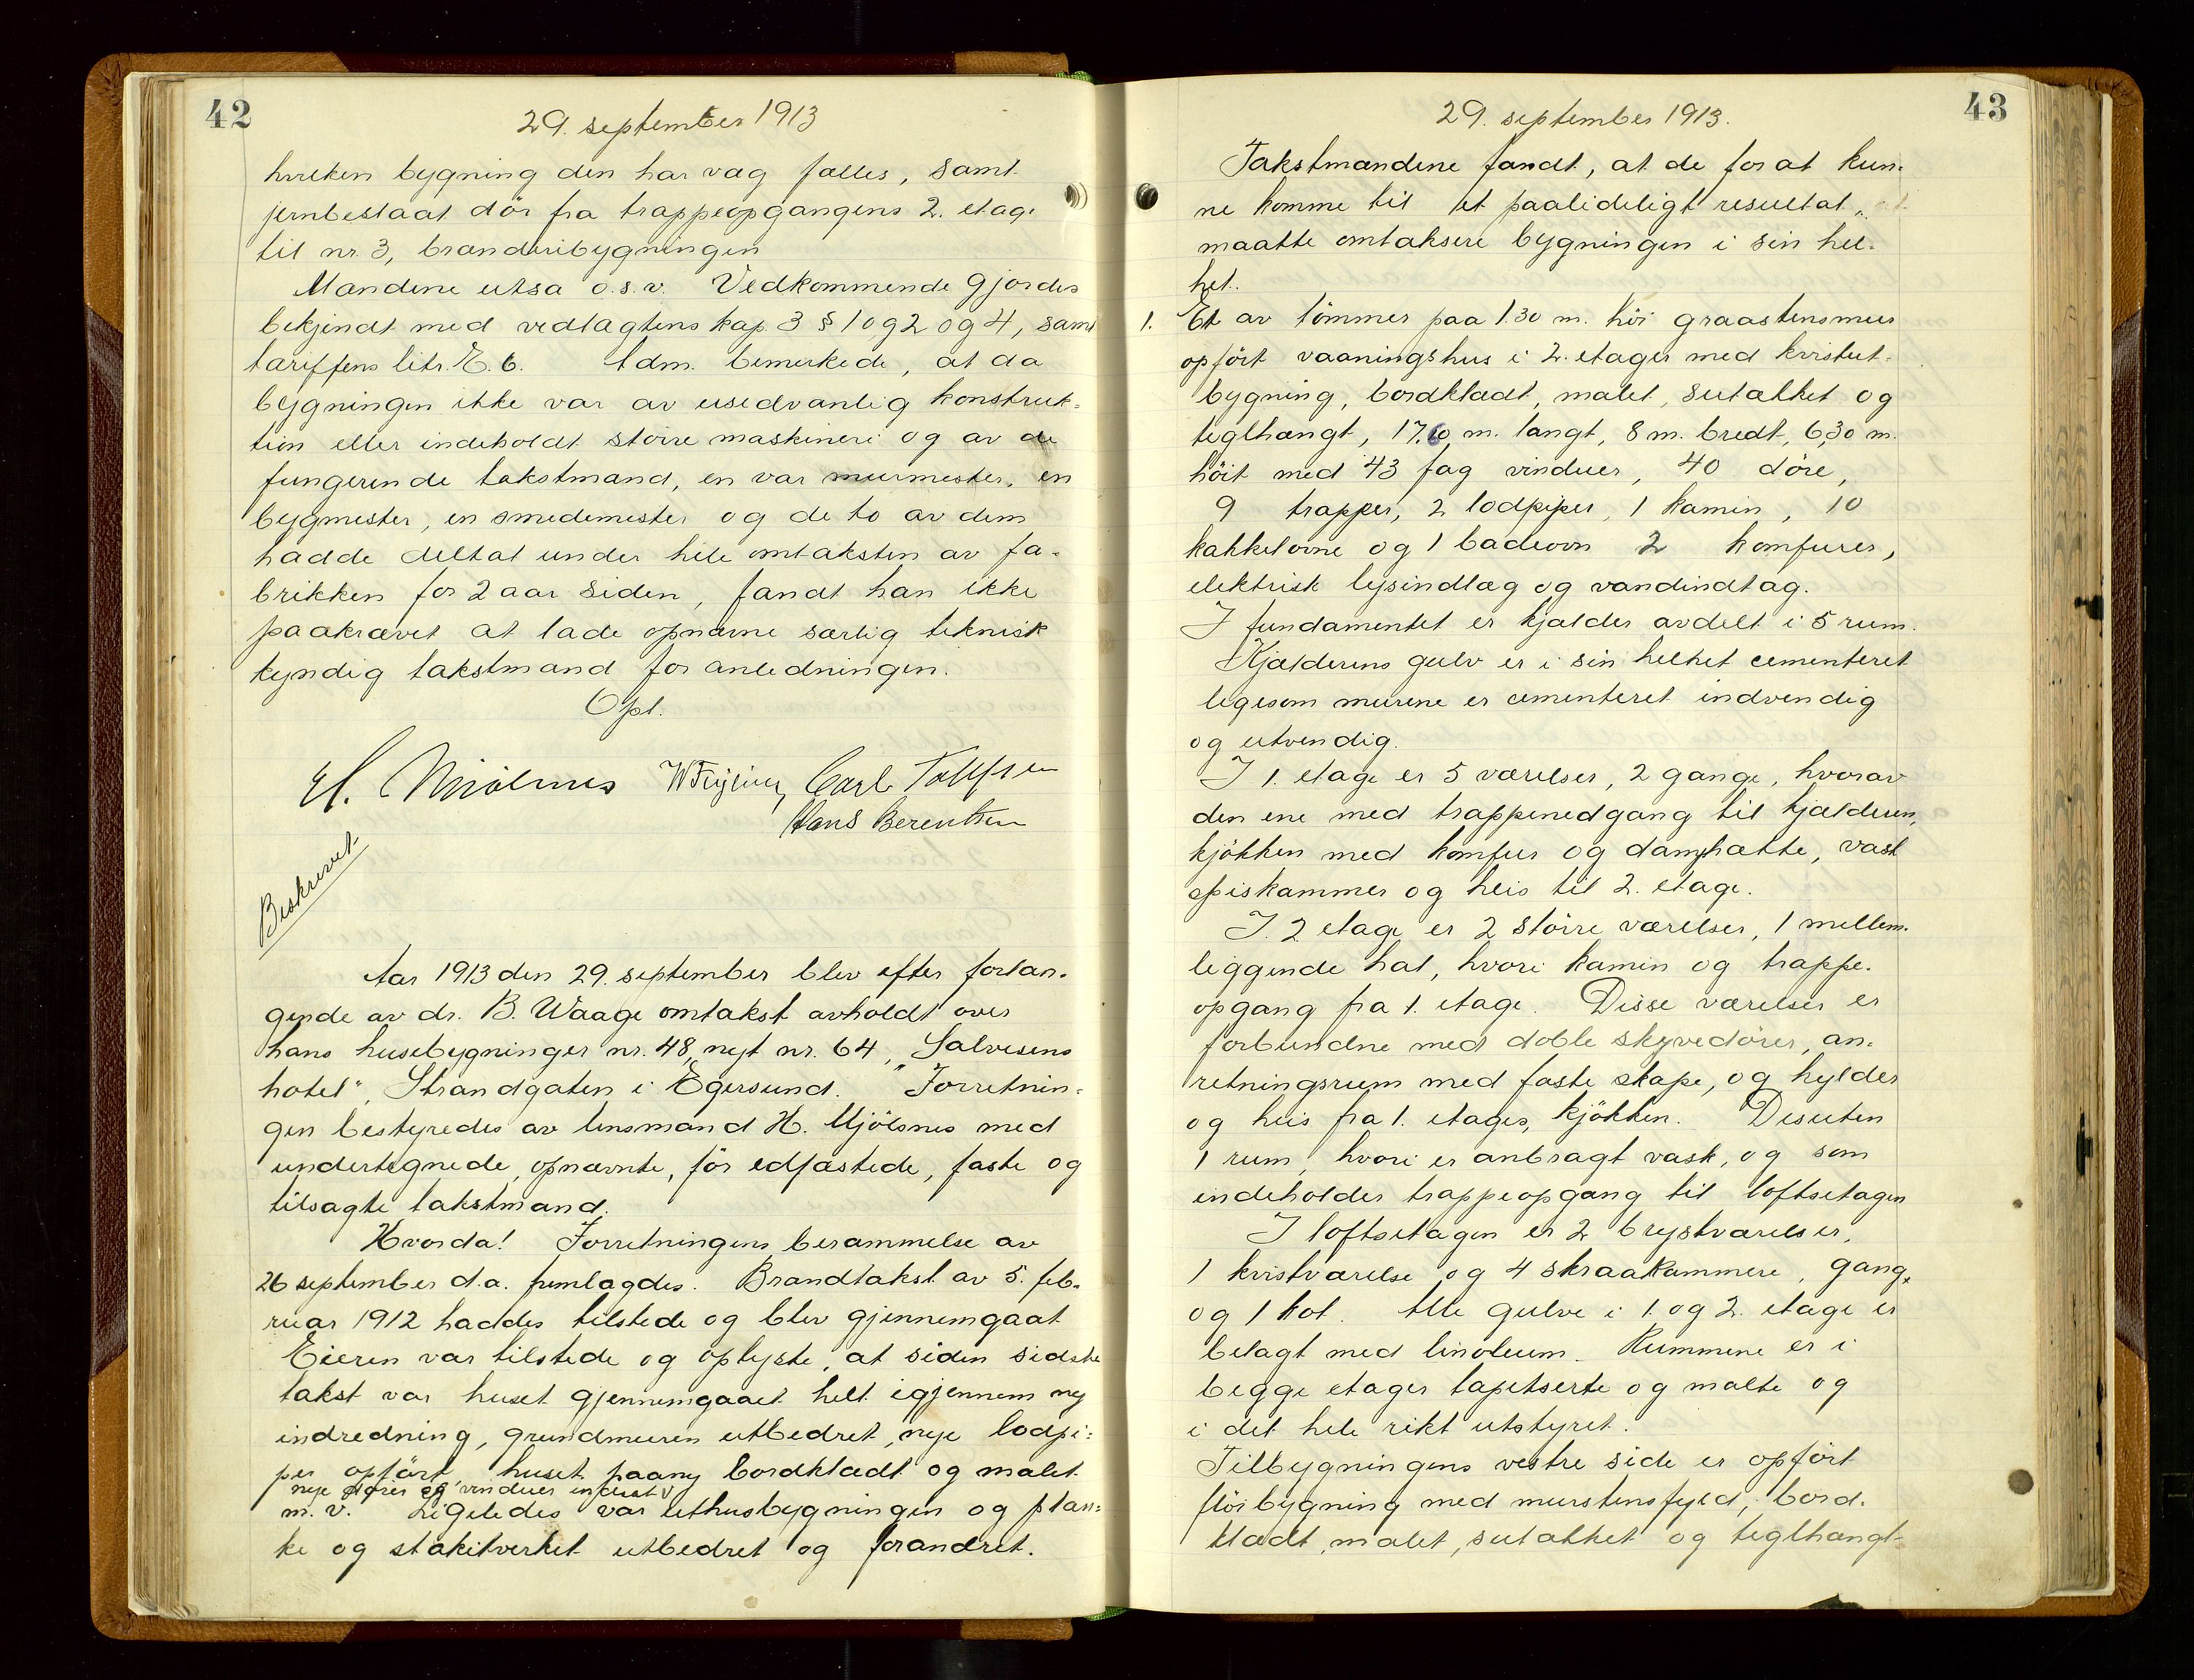 42
29. september 1913
hvilken bygning den har væg fælles, samt
jernbeslaat dör fra trappeopgangens 2. etage
til nr. 3, brænderibygningen
Mændene utsa o.s.v. Vedkommende gjordes
bekjendt med vedtagtens kap. 3 § 1 og 2 og 4, samt
tariffens litr. E. 6. Adm. bemerkede, at da
bygningen ikke var av usedvanlig konstruk-
tion eller indeholdt större maskineri og av de
fungerende takstmænd, en var murmester, en
bygmester, en smedemester og de to av dem
hadde deltat under hele omtaksten av fa-
brikken for 2 aar siden, fandt han ikke
paakrævet at lade opnævne særlig teknisk
kyndig takstmand for anledningen.
Opl.
H. Mjölsnes Carl Tollefsen
Hans Berentsen
Beskrevet
Aar 1913 den 29. september blev efter forlan-
gende av dr. B. Waage omtakst avholdt over
hans husebygninger nr. 48, nyt nr. 64, "Salvesens
hotel", Strandgaten i Egersund. Forretnin-
gen bestyredes av lensmand H. Mjölsnes med
undertegnede, opnævnte, för edfæstede, faste og
tilsagte takstmænd.
Hvorda! Forretningens berammelse av
26 september d.a. fremlagdes. Brandtakst av 5. feb-
ruar 1912 haddes tilstede og blev gjennemgaat
Eieren var tilstede og oplyste, at siden sidste
takst var huset gjennemgaaet helt igjennem ny
indredning, grundmuren utbedret, nye lodpi-
per opfört, huset paany bordklædt og malet
nye dörer og vinduer indsat
m. v. Ligeledes var uthusbygningen og plan-
ke og stakitverket utbedret og forandret.
43
29. september 1913.
Takstmændene fandt, at de for at kun-
ne komme til et paalideligt resultat,
maatte omtaksere bygningen i sin hel-
het.
1. Et av tömmer paa 1.30 m. höi graastensmur
opfört vaaningshus i 2. etager med kvistut-
bygning, bordklædt, malet, sutækket og
teglhængt, 17.60 m. langt, 8 m. bredt, 6,30 m.
höit med 43 fag vinduer, 40 döre,
9 trapper, 2 lodpiper, 1 kamin, 10
kakkelovne og 1 badeovn 2 komfurer,
elektrisk lysindlæg og vandindtag.
I fundamentet er kjælder avdelt i 5 rum.
Kjælderens gulv er i sin helhet cementeret
ligesom murene er cementeret indvendig
og utvendig.
I 1. etage er 5 værelser, 2 gange, hvorav
den ene med trappenedgang til kjælderen,
kjökken med komfur og damphætte, vask
spiskammer og heis til 2. etage.
I. 2 etage er 2 större værelser, 1 mellem-
liggende hal, hvori kamin og trappe-
opgang fra 1. etage. Disse værelser er
forbundne med doble skyvedörer, an-
retningsrum med faste skape, og hylder
og heis fra 1. etages, kjökken. Desuten
1 rum, hvori er anbragt vask, og som
indeholder trappeopgang til loftsetagen
I loftsetagen er 2 brystværelser,
1 kvistværelse og 4 skraakammere, gang,
og 1 kot. Alle gulve i 1. og 2. etage er
belagt med linoleum. Rummene er i
begge etager tapetserte og malte og
i det hele rikt utstyret.
Tilbygningens vestre side er opfört
flöibygning med murstensfyld, bord-
klædt, malet, sutækket og teglhængt